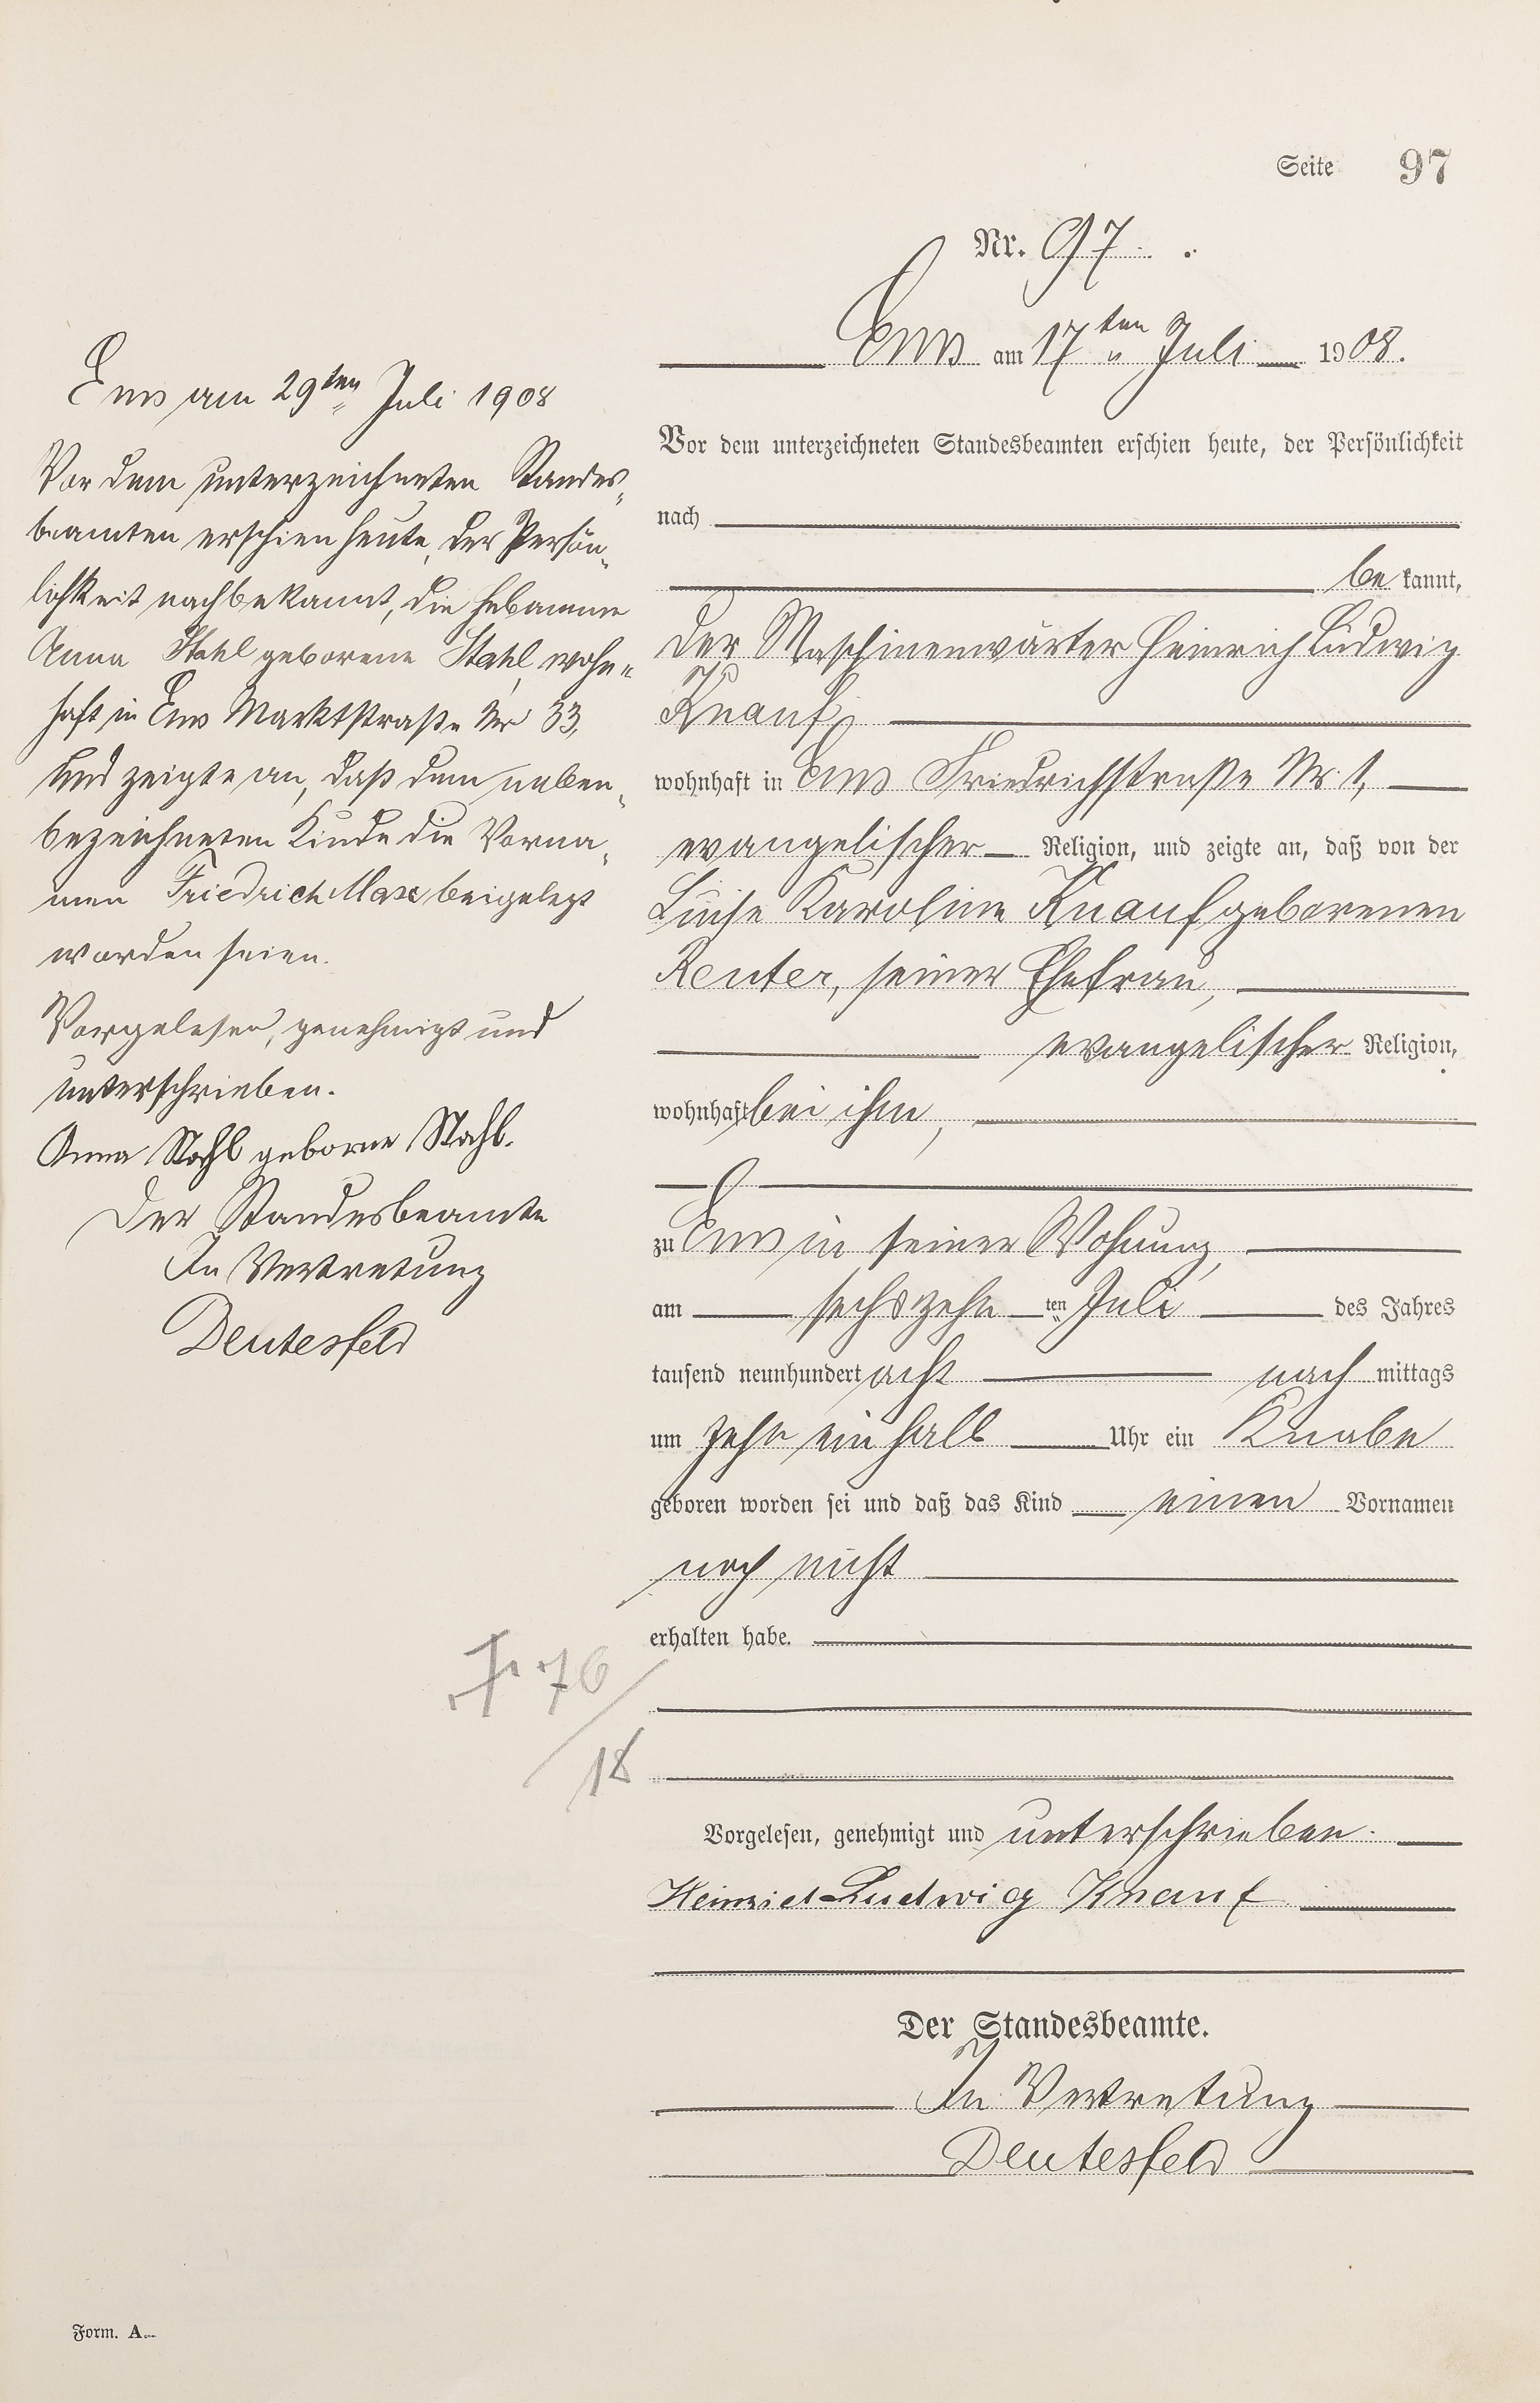 Seite 97
Nr. 97.
Ems am 17ten Juli 1908.
Vor dem unterzeichneten Standesbeamten erschien heute, der Persönlichkeit
nach
be kannt,
der Maschinenwärter Heinrich Ludwig
Knauf,
wohnhaft in Ems Friedrichstraße Nr. 1,
evangelischer Religion, und zeigte an, daß von der
Luise Karoline Knauf geborenen
Reuter, seiner Ehefrau,
evangelischer Religion,
wohnhaft bei ihm,
zu Ems in seiner Wohnung,
am sechszehn ten Juli des Jahres
tausend neunhundert acht nach mittags
um zehn ein halb Uhr ein Knabe
geboren worden sei und daß das Kind einen Vornamen
noch nicht
erhalten habe.
Vorgelesen, genehmigt und unterschrieben.
Heinrich Ludwig Knauf
Der Standesbeamte.
In Vertretung
Deutesfeld
Ems am 29ten Juli 1908
Vor dem unterzeichneten Standes-
beamten erschien heute, der Persön-
lichkeit nach bekannt, die Hebamme
Anna Stahl geborene Stahl, wohn-
haft in Ems Marktstraße Nr 33,
und zeigte an, daß dem neben-
bezeichneten Kinde die Vorna-
men Friedrich Max beigelegt
worden seien.
Vorgelesen, genehmigt und
unterschrieben.
Anna Stahl geborne Stahl.
Der Standesbeamte
In Vertretung
Deutesfeld
76
18
Form. A.